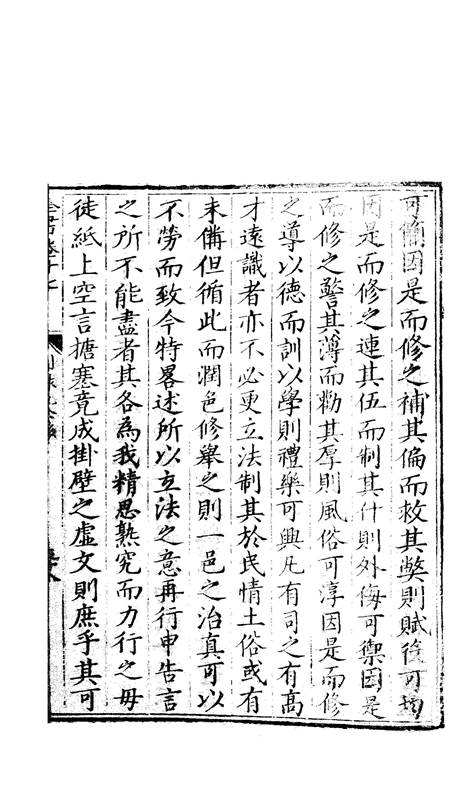 可循因是而修之補其偏而救其獘則賦役可均
因是而修之連其伍而制其什則外侮可禦因是
而修之警其薄而勸其厚則風俗可淳因是而修
之導以德而訓以學則禮樂可興凡有司之有高
才遠識者亦不必更立法制其於民情土俗或有
未備但循此而潤色修舉之則一邑之治真可以
不勞而致今特畧述所以立法之意再行申告言
之所不能盡者其各為我精思熟究而力行之毋
徒紙上空言搪塞竟成掛壁之虛文則庶乎其可